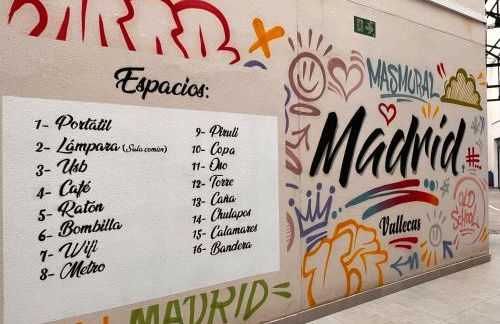 Espacios:
1- Portátil
2- Lámpara (Sala común)
3- Usb
4- Café
5- Ratón
6- Bombilla
7- Wifi
8- Metro
9- Piruli
10- Copa
11- Oso
12- Torre
13- Caña
14- Chulapos
15- Calamares
16- Bandera
MADRID
MASMURAL
Madrid
#
OLD
SCHOOL
Vallecas